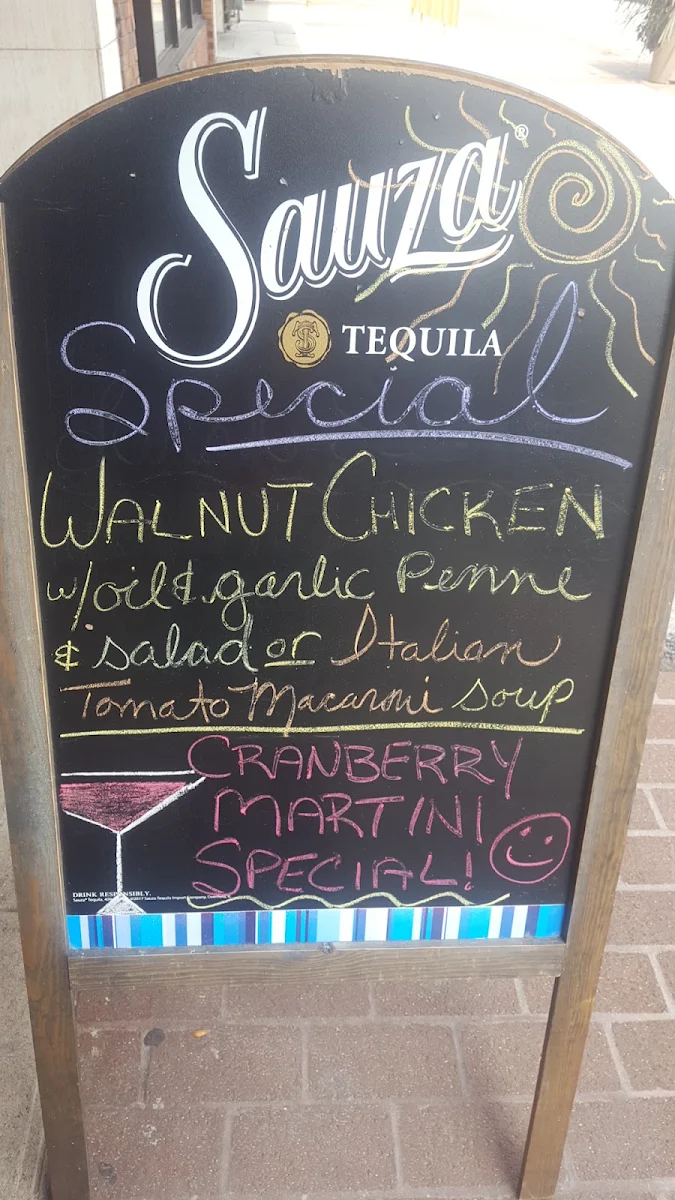 Sauza®
TEQUILA
Special
WALNUT CHICKEN
w/oil & garlic Penne
& salad or Italian
Tomato Macaroni soup
CRANBERRY
MARTINI
SPECIAL!
DRINK RESPONSIBLY.